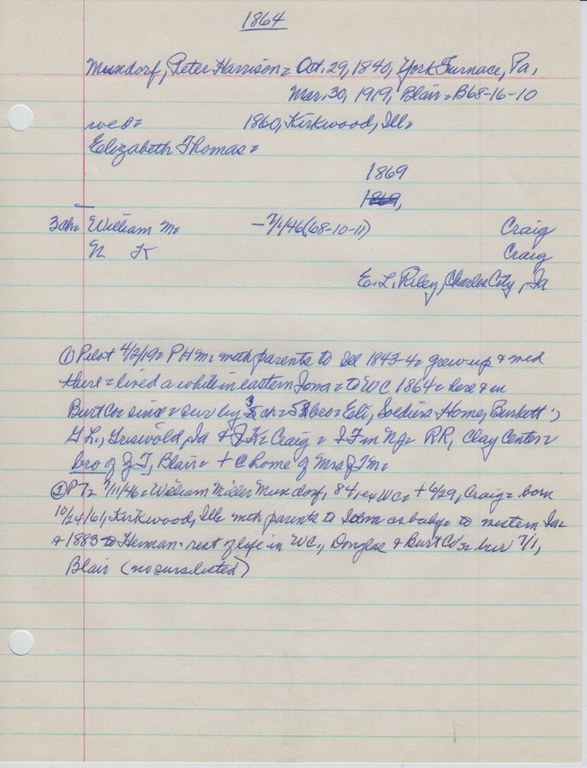 1864
Mundorf, Peter Harrison = Oct. 29, 1840, York Furnace, Pa,
Mar. 30, 1919, Blair = B68-16-10
wed = 1860, Kirkwood, Ill =
Elizabeth Thomas =
1869
1869,
3 ch = William M = - 7/1/46 (68-10-11) Craig
N K Craig
E. L. Riley, Charles City, Ia
① Pilot 4/2/19 = PHM = with parents to Ill 1843-4 = grew up & wed
there = lived a while in eastern Iowa = to WC 1864 = here & in
Burt Co since = surv by 3 ch = bro = Eli, Soldiers Home, Burkett;
G L, Griswold, Ia & J K = Craig = J F in N = RR, Clay Center =
bro of J T, Blair = + @ home of Mrs J M =
② PT = 7/11/46 = William Miller Mundorf, 84, ex WC = + 6/29, Craig = born
10/24/61, Kirkwood, Ill = with parents to Iowa as baby = to western Ia =
+ 1883 to Herman = rest of life in WC, Douglas & Burt Co = bur 7/1,
Blair (no surv listed)